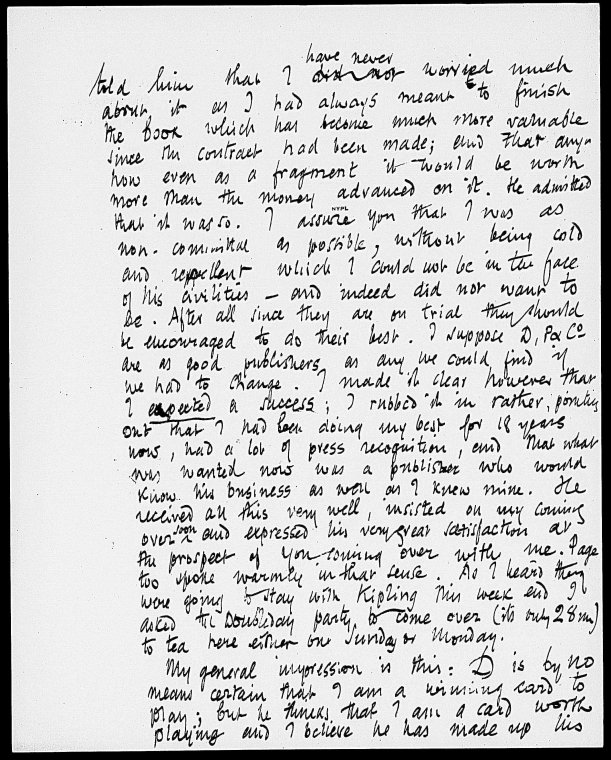 have never
told him that I did not worried much
about it as I had always meant to finish
the book which has become much more valuable
since the contract had been made; and that any-
how even as a fragment it would be worth
more than the money advanced on it. He admitted
that it was so. I assure you that I was as
NYPL
non-committal as possible, without being cold
and repellent which I could not be in the face
of his civilities — and indeed did not want to
be. After all since they are on trial they should
be encouraged to do their best. I suppose D, P & Co
are as good publishers as any we could find if
we had to change. I made it clear however that
I expected a success; I rubbed it in rather, pointing
out that I had been doing my best for 18 years
now, had a lot of press recognition, and that what
was wanted now was a publisher who would
know his business as well as I knew mine. He
received all this very well, insisted on my coming
over soon and expressed his very great satisfaction at
the prospect of you coming over with me. Page
too spoke warmly in that sense. As I heard they
were going to stay with Kipling this week end I
asked the Doubleday party to come over (its only 28 m)
to tea here either on Sunday or Monday.
My general impression is this: D is by no
means certain that I am a winning card to
play; but he thinks that I am a card worth
playing and I believe he has made up his